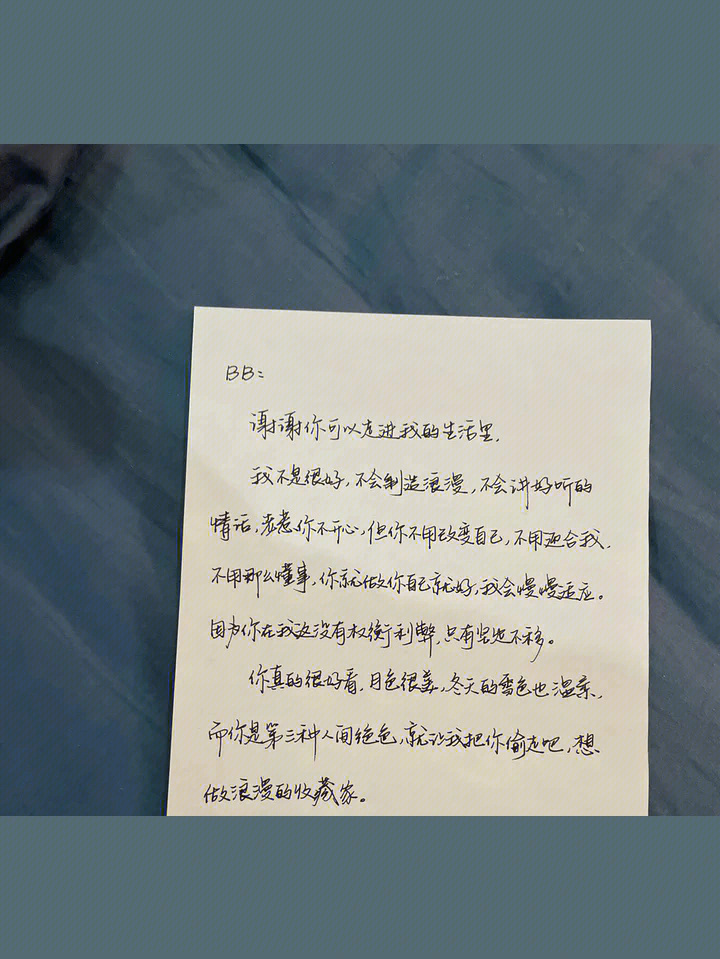 BB:
谢谢你可以走进我的生活里,
我不是很好,不会制造浪漫,不会讲好听的
情话,老惹你不开心,但你不用改变自己,不用迎合我,
不用那么懂事,你就做你自己就好,我会慢慢适应。
因为你在我这没有权衡利弊,只有坚定不移。
你真的很好看,月色很美,冬天的雪色也温柔,
而你是第三种人间绝色,就让我把你偷走吧,想
做浪漫的收藏家。